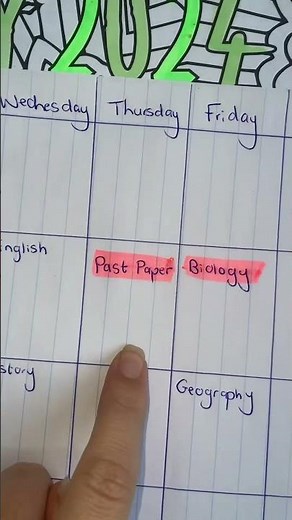 Y 2024
Wednesday Thursday Friday
nglish Past Paper - Biology
story Geography